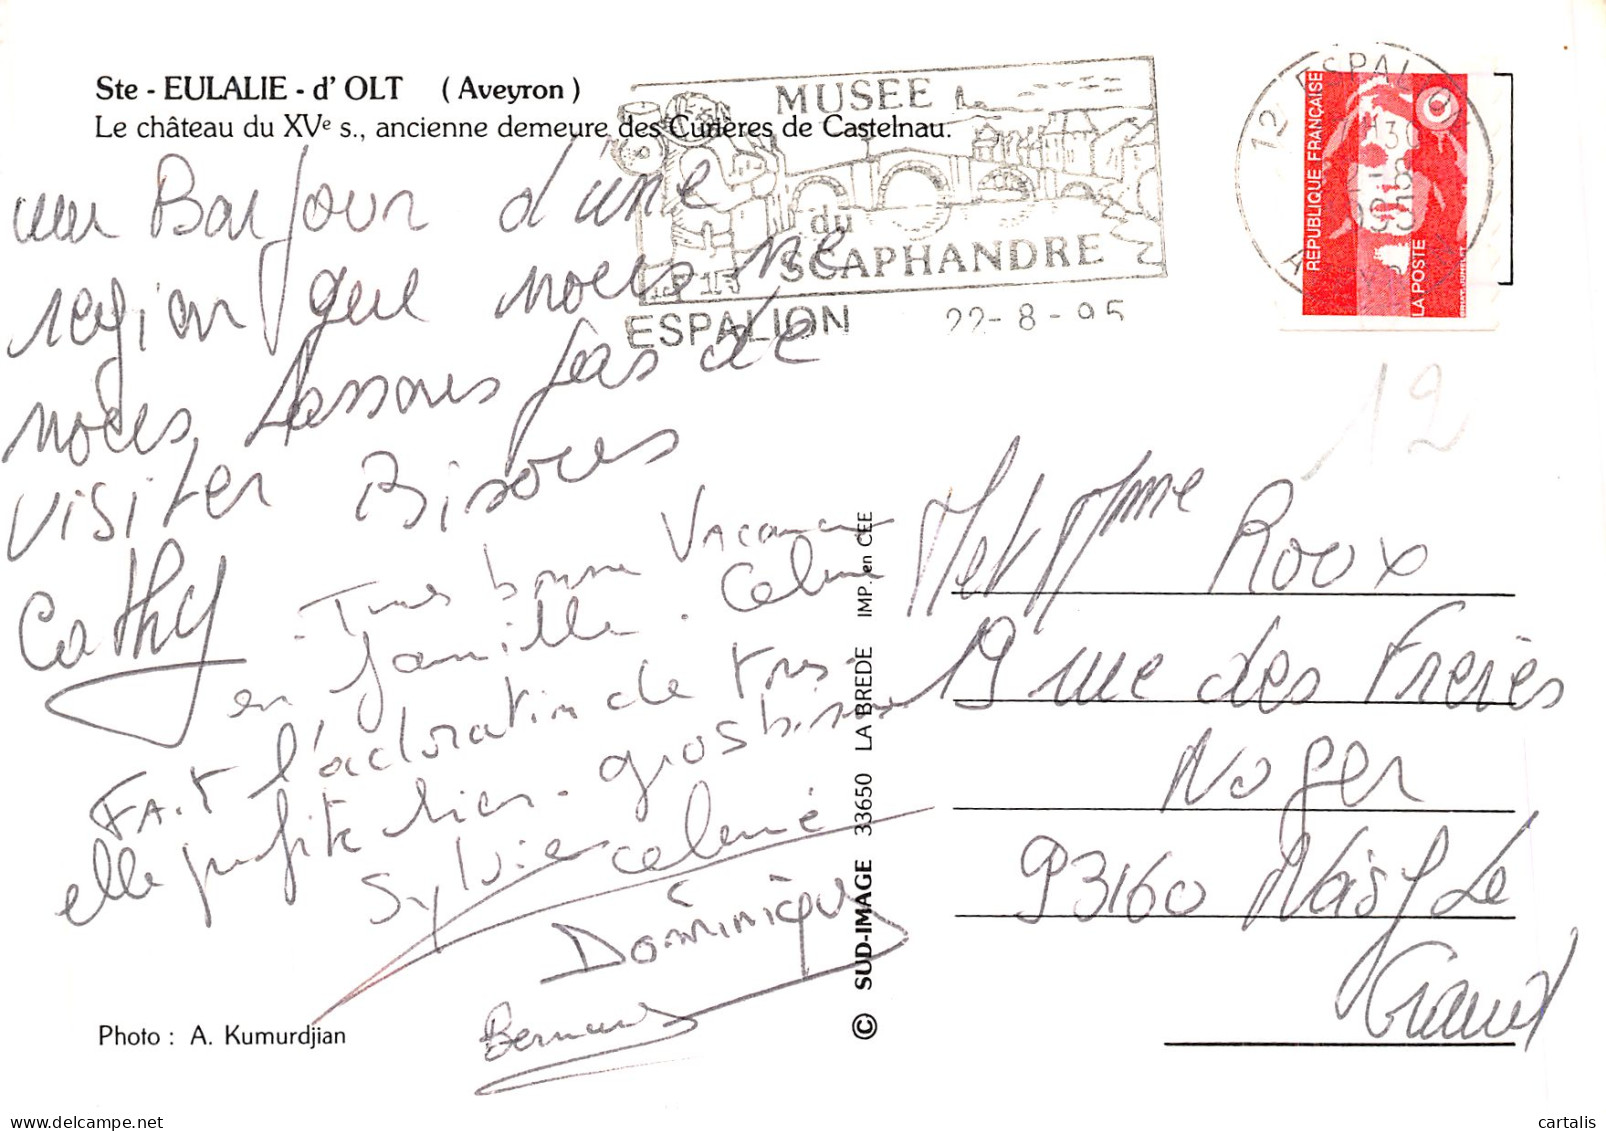 Ste - EULALIE - d' OLT ( Aveyron )
Le château du XVe s., ancienne demeure des Curières de Castelnau.
MUSEE
du
SCAPHANDRE
ESPALION
22-8-95
12 ESPALION
REPUBLIQUE FRANÇAISE
LA POSTE
12
un Bonjour d'une
region que nous ne
nous lassons pas de
visiter Bisous
Cathy
- Tres bonne Vacance
en famille. Celine
Fait l'adoration de tous
elle profite bien. gros bisous
Sylvie celine
Dominique
Bernard
Photo : A. Kumurdjian
© SUD-IMAGE 33650 LA BREDE IMP. en CEE
Mr et Mme Roux
19 rue des Freres
Noger
93160 Noisy Le
Grand
cartalis